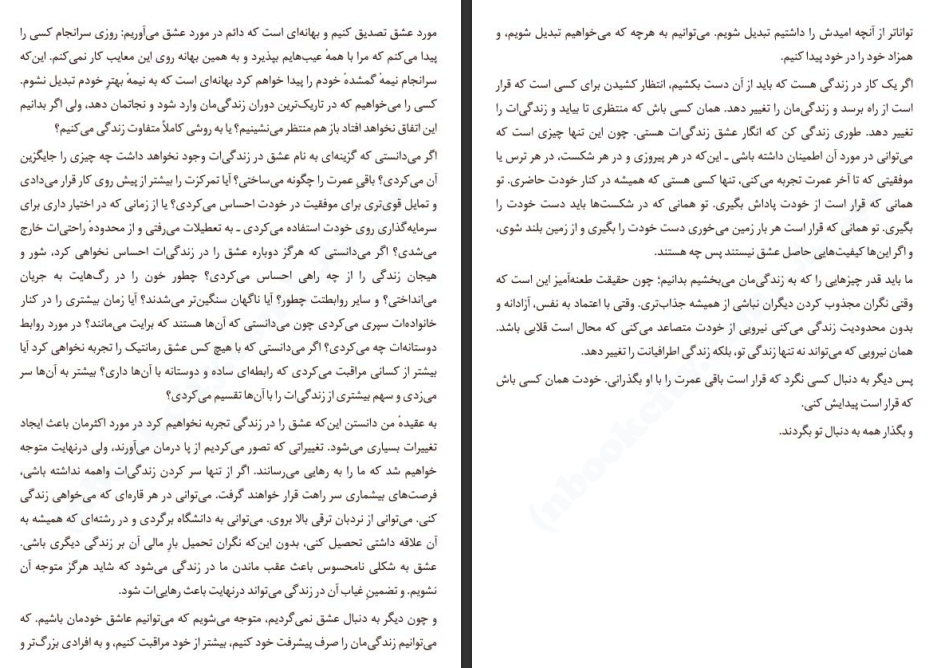 مورد عشق تصدیق کنیم و بهانه‌ای است که دائم در مورد عشق می‌آوریم: روزی سرانجام کسی را
پیدا می‌کنم که مرا با همهٔ عیب‌هایم بپذیرد و به همین بهانه روی این معایب کار نمی‌کنم. این‌که
سرانجام نیمهٔ گمشدهٔ خودم را پیدا خواهم کرد بهانه‌ای است که به نیمهٔ بهترِ خودم تبدیل نشوم.
کسی را می‌خواهیم که در تاریک‌ترین دوران زندگی‌مان وارد شود و نجاتمان دهد، ولی اگر بدانیم
این اتفاق نخواهد افتاد باز هم منتظر می‌نشینیم؟ یا به روشی کاملاً متفاوت زندگی می‌کنیم؟
اگر می‌دانستی که گزینه‌ای به نام عشق در زندگی‌ات وجود نخواهد داشت چه چیزی را جایگزین
آن می‌کردی؟ باقیِ عمرت را چگونه می‌ساختی؟ آیا تمرکزت را بیشتر از پیش روی کار قرار می‌دادی
و تمایل قوی‌تری برای موفقیت در خودت احساس می‌کردی؟ یا از زمانی که در اختیار داری برای
سرمایه‌گذاری روی خودت استفاده می‌کردی ـ به تعطیلات می‌رفتی و از محدودهٔ راحتی‌ات خارج
می‌شدی؟ اگر می‌دانستی که هرگز دوباره عشق را در زندگی‌ات احساس نخواهی کرد، شور و
هیجان زندگی را از چه راهی احساس می‌کردی؟ چطور خون را در رگ‌هایت به جریان
می‌انداختی؟ و سایر روابطتت چطور؟ آیا ناگهان سنگین‌تر می‌شدند؟ آیا زمان بیشتری را در کنار
خانواده‌ات سپری می‌کردی چون می‌دانستی که آن‌ها هستند که برایت می‌مانند؟ در مورد روابط
دوستانه‌ات چه می‌کردی؟ اگر می‌دانستی که با هیچ کس عشق رمانتیک را تجربه نخواهی کرد آیا
بیشتر از کسانی مراقبت می‌کردی که رابطه‌ای ساده و دوستانه با آن‌ها داری؟ بیشتر به آن‌ها سر
می‌زدی و سهم بیشتری از زندگی‌ات را با آن‌ها تقسیم می‌کردی؟
به عقیدهٔ من دانستن این‌که عشق را در زندگی تجربه نخواهیم کرد در مورد اکثرمان باعث ایجاد
تغییرات بسیاری می‌شود. تغییراتی که تصور می‌کردیم از پا درمان می‌آورند، ولی درنهایت متوجه
خواهیم شد که ما را به رهایی می‌رسانند. اگر از تنها سر کردن زندگی‌ات واهمه نداشته باشی،
فرصت‌های بیشماری سر راهت قرار خواهند گرفت. می‌توانی در هر قاره‌ای که می‌خواهی زندگی
کنی. می‌توانی از نردبان ترقی بالا بروی. می‌توانی به دانشگاه برگردی و در رشته‌ای که همیشه به
آن علاقه داشتی تحصیل کنی، بدون این‌که نگران تحمیل بارِ مالی آن بر زندگی دیگری باشی.
عشق به شکلی نامحسوس باعث عقب ماندن ما در زندگی می‌شود که شاید هرگز متوجه آن
نشویم. و تضمینِ غیاب آن در زندگی می‌تواند درنهایت باعث رهایی‌ات شود.
و چون دیگر به دنبال عشق نمی‌گردیم، متوجه می‌شویم که می‌توانیم عاشق خودمان باشیم. که
می‌توانیم زندگی‌مان را صرف پیشرفت خود کنیم، بیشتر از خود مراقبت کنیم، و به افرادی بزرگ‌تر و
تواناتر از آنچه امیدش را داشتیم تبدیل شویم. می‌توانیم به هرچه که می‌خواهیم تبدیل شویم، و
همزاد خود را در خود پیدا کنیم.
اگر یک کار در زندگی هست که باید از آن دست بکشیم، انتظار کشیدن برای کسی است که قرار
است از راه برسد و زندگی‌مان را تغییر دهد. همان کسی باش که منتظری تا بیاید و زندگی‌ات را
تغییر دهد. طوری زندگی کن که انگار عشق زندگی‌ات هستی. چون این تنها چیزی است که
می‌توانی در مورد آن اطمینان داشته باشی ـ این‌که در هر پیروزی و در هر شکست، در هر ترس یا
موفقیتی که تا آخر عمرت تجربه می‌کنی، تنها کسی هستی که همیشه در کنار خودت حاضری. تو
همانی که قرار است از خودت پاداش بگیری. تو همانی که در شکست‌ها باید دست خودت را
بگیری. تو همانی که قرار است هر بار زمین می‌خوری دست خودت را بگیری و از زمین بلند شوی،
و اگر این‌ها کیفیت‌هایی حاصل عشق نیستند پس چه هستند.
ما باید قدر چیزهایی را که به زندگی‌مان می‌بخشیم بدانیم؛ چون حقیقت طعنه‌آمیز این است که
وقتی نگران مجذوب کردن دیگران نباشی از همیشه جذاب‌تری. وقتی با اعتماد به نفس، آزادانه و
بدون محدودیت زندگی می‌کنی نیرویی از خودت متصاعد می‌کنی که محال است قلابی باشد.
همان نیرویی که می‌تواند نه تنها زندگی تو، بلکه زندگی اطرافیانت را تغییر دهد.
پس دیگر به دنبال کسی نگرد که قرار است باقی عمرت را با او بگذرانی. خودت همان کسی باش
که قرار است پیدایش کنی.
و بگذار همه به دنبال تو بگردند.